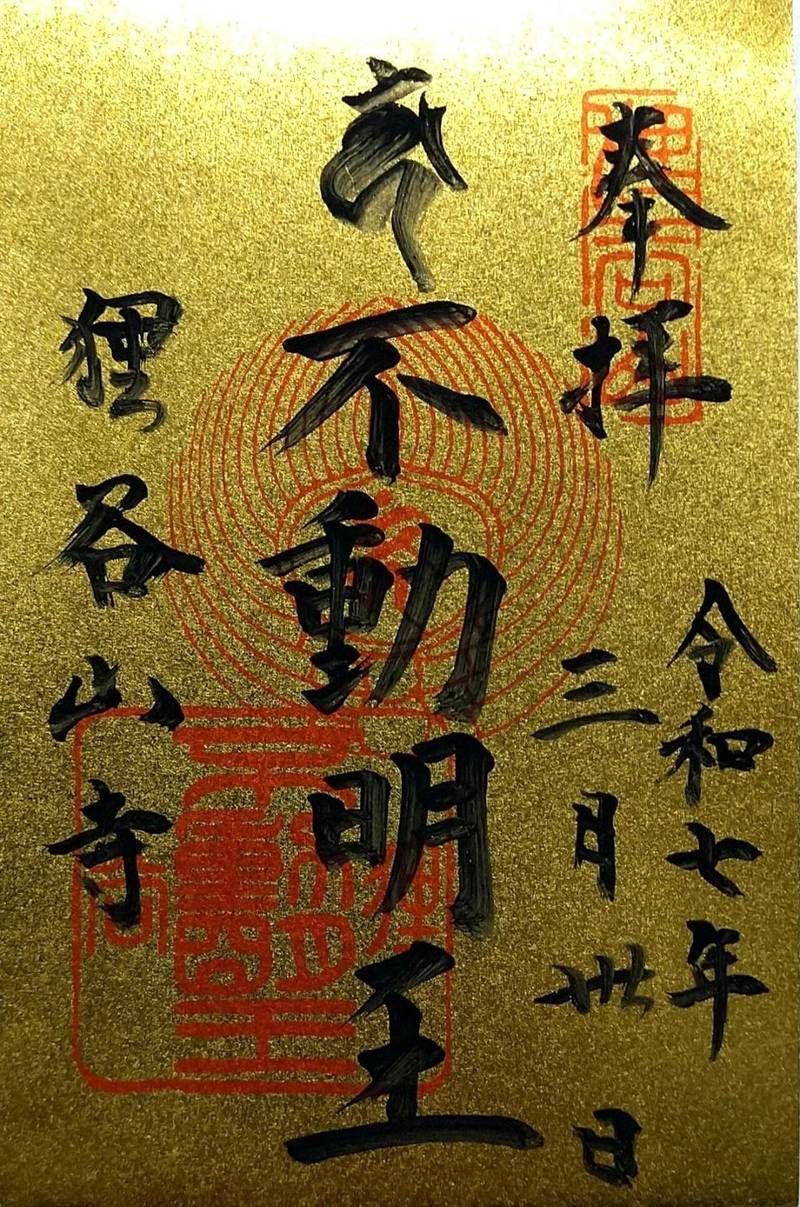 奉拝
令和七年
三月卅日
不動明王
狸谷山寺